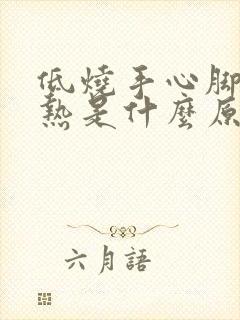 低燒手心腳
熱是什麼原
六月語